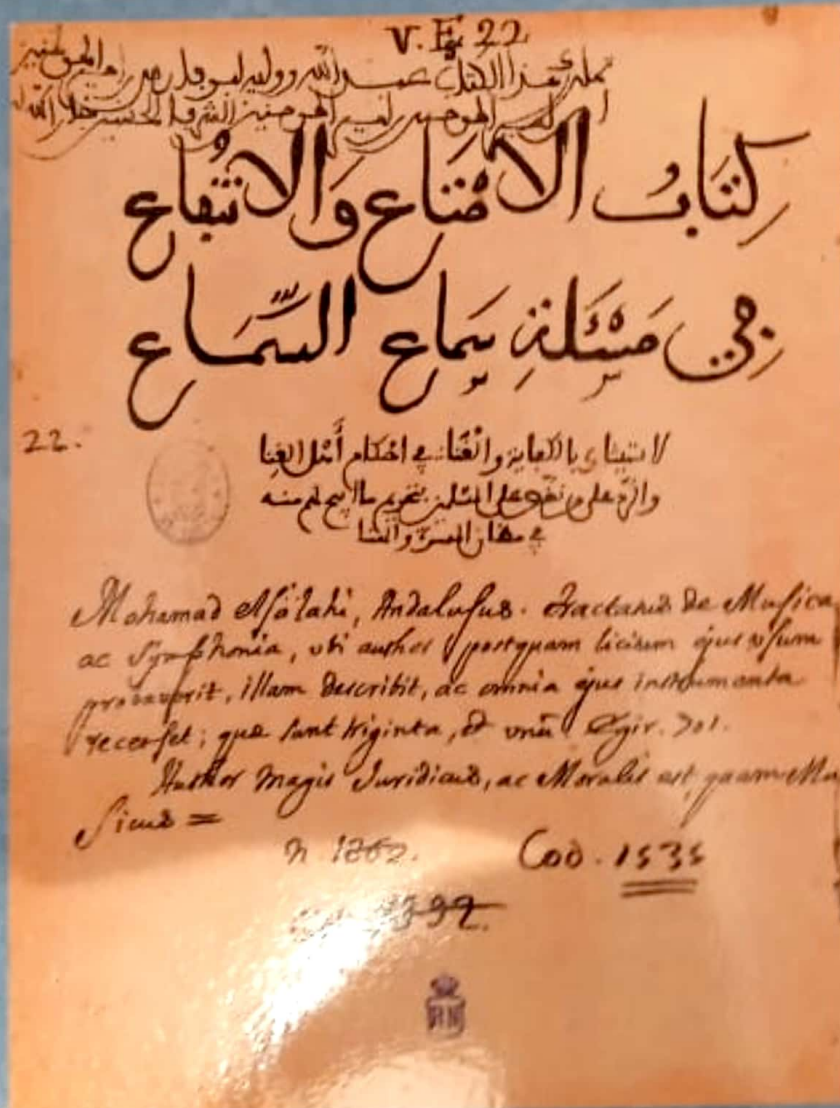 V. E. 22
تملك هذا الكتاب عبد الله ووليه أمير المومنين
أمير المومنين الشريف الحسني
كِتَابُ الامْتَاعِ وَالانْتِفَاعِ
فِي مَسْئَلَةِ سَمَاعِ السَّمَاعِ
22.
لاستيفائه بالكفاية والغَنَاء في احكام أَهل الغِنا
والرّدّ على من على المسلمين بتحريم ما ابيح لهم منه
في مظان المسرّة والهنا
Mohamad Alsalahi, Andalusus. Tractatus de Musica
ac Symphonia, ubi author postquam licitum ejus usum
probaverit, illam describit, ac omnia ejus instrumenta
recenset; quæ sunt triginta, et unũ Egir. 701.
Author magis Juridicus, ac Moralis est, quam Mu
sicus =
n. 1862. Cod. 1535
RN